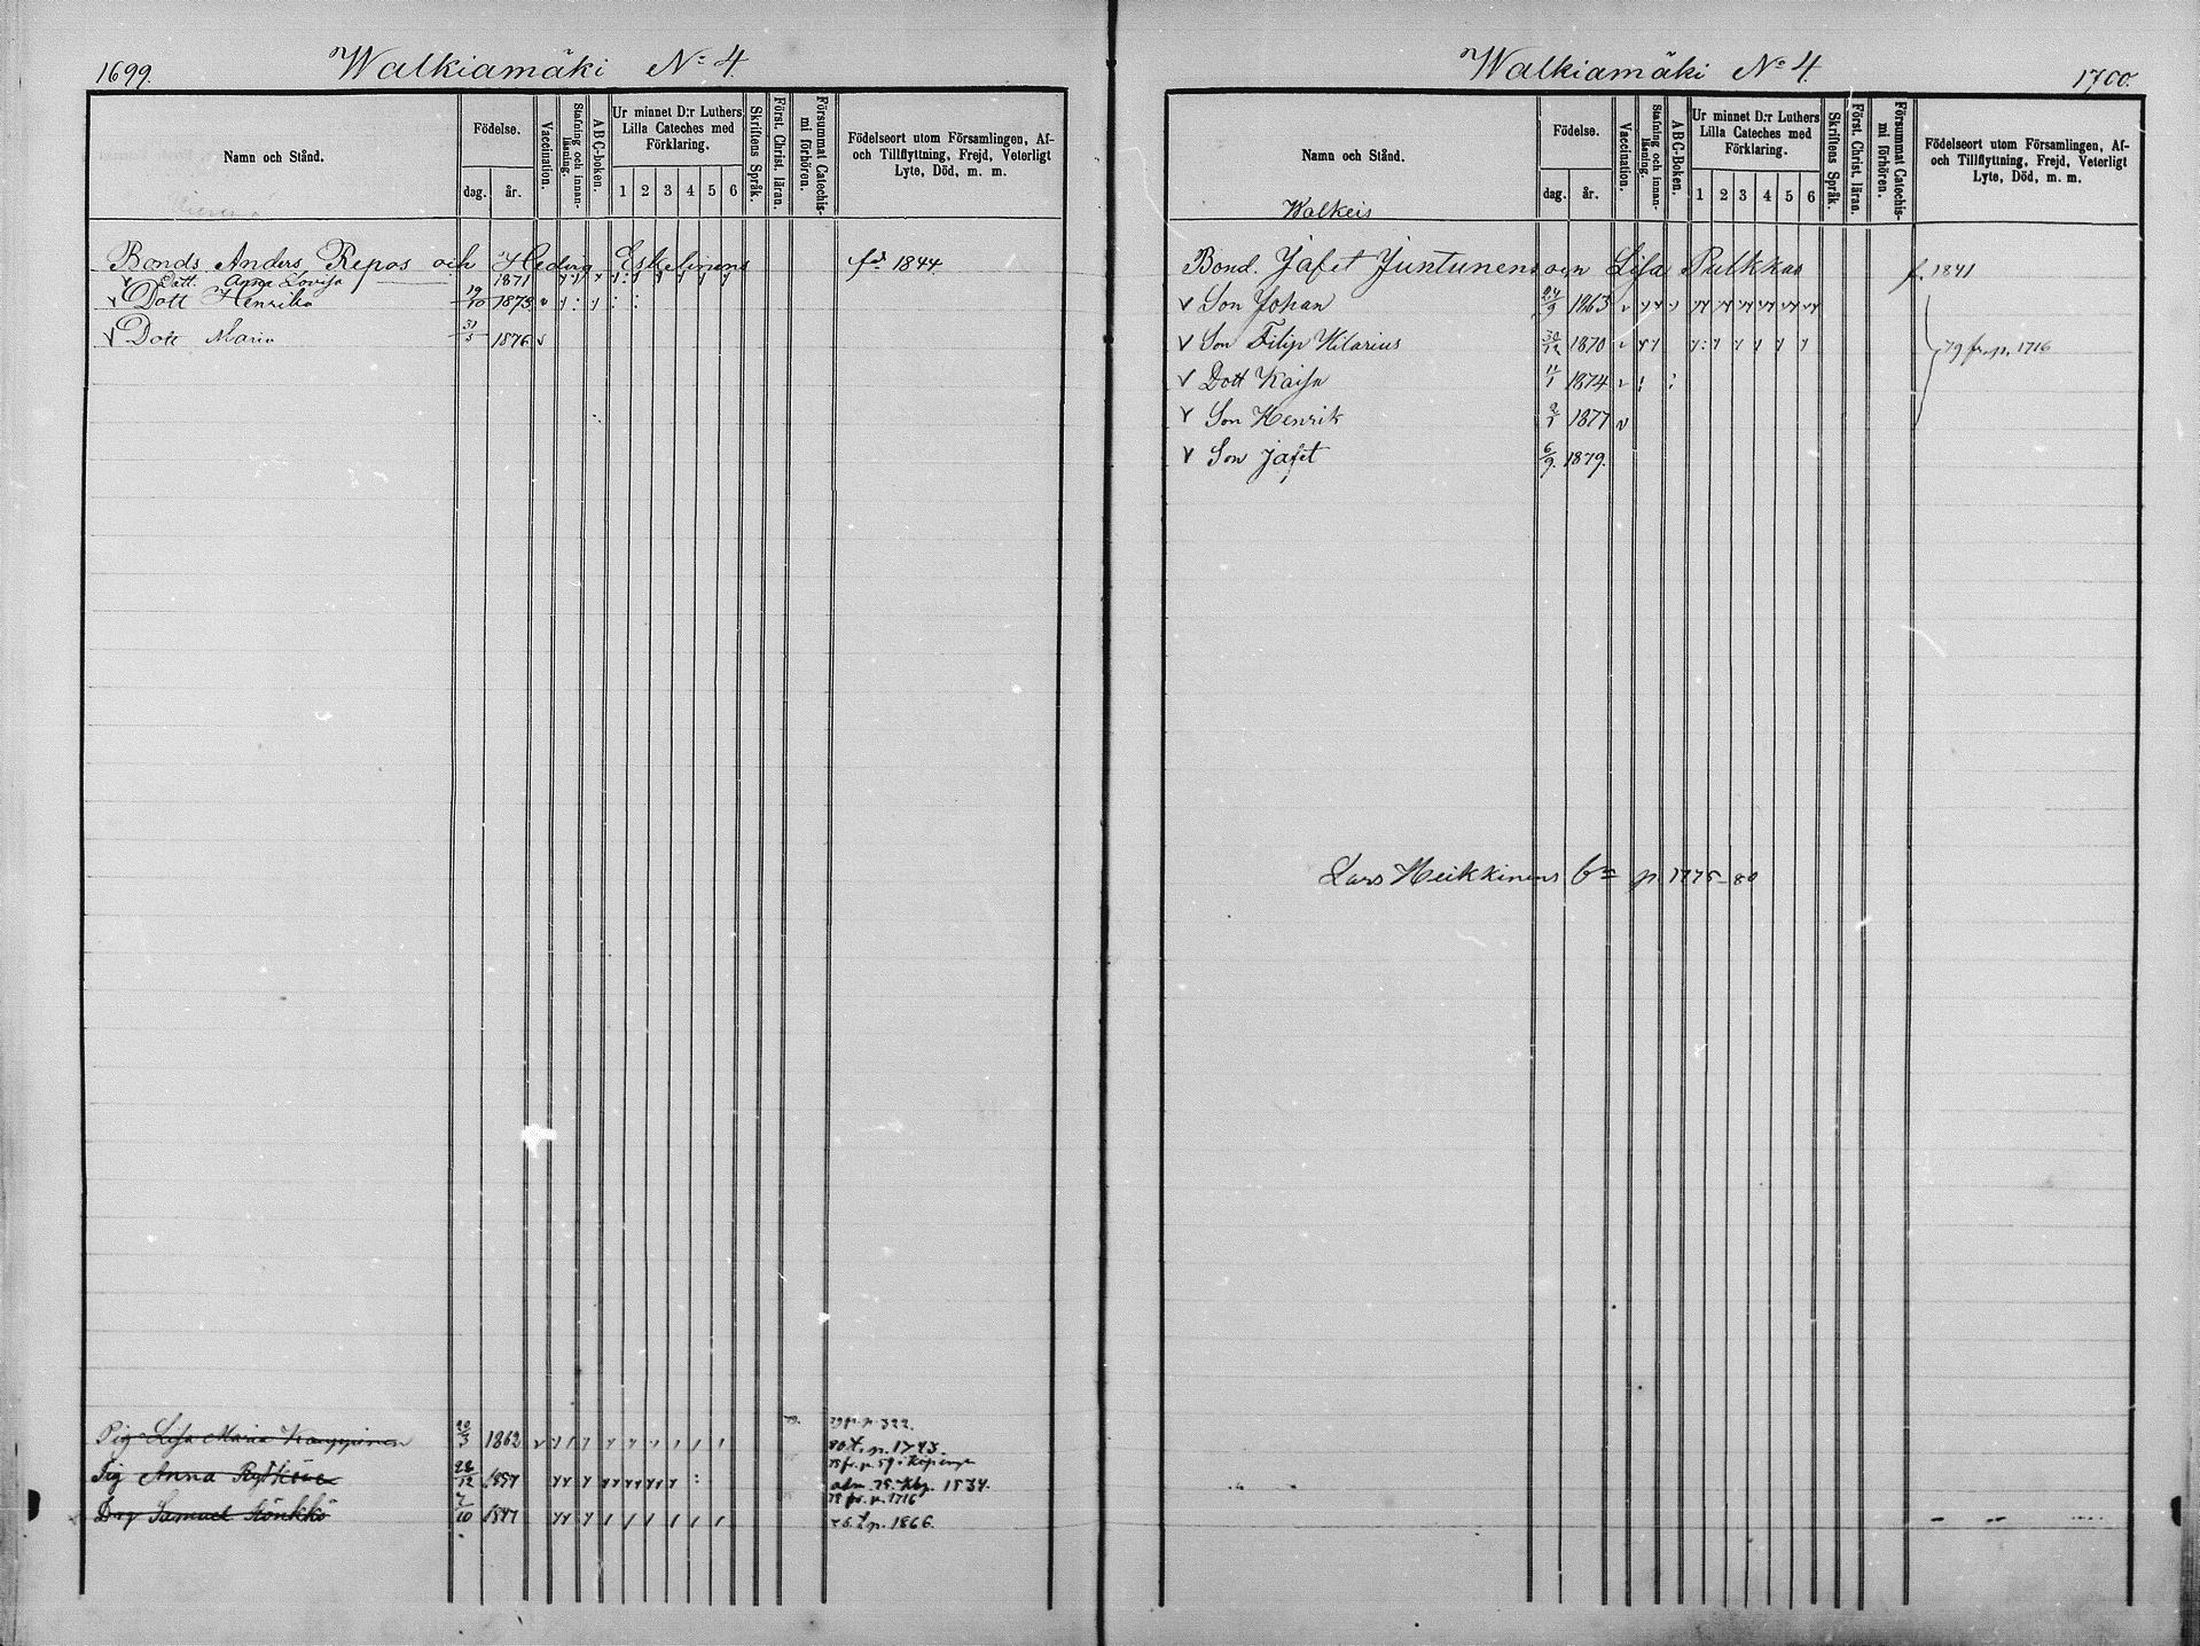 1699.
Walkiamäki No 4.
Namn och Stånd.
Födelse.
dag.
år.
Vaccination.
Stafning och innanläsning.
A B C-boken.
Ur minnet D:r Luthers Lilla Cateches med Förklaring.
1 2 3 4 5 6
Skriftens Språk.
Först. Christ. läran.
Försummat Catechismi förhören.
Födelseort utom Församlingen, Af- och Tillflyttning, Frejd, Veterligt Lyte, Död, m. m.
Bonds Anders Repos och Hedvig Eskelinens fd. 1844
Dott. Anna Lovisa 1871
Dott Henrika 19/10 1873
Dott Maria 31/5 1876
Pig Lisa Maria 20/3 1862 79 fr. p. 322.
80 t. p. 1743.
Pig Anna Rytköne 28/12 1857
1534.
78 fr. p. 1716
Drg Samuel Mönkkö 7/10 1847 t p. 1866.
Walkiamäki No 4.
1700.
Namn och Stånd.
Walkeis
Födelse.
dag.
år.
Vaccination.
Stafning och innanläsning.
A B C-Boken.
Ur minnet D:r Luthers Lilla Cateches med Förklaring.
1 2 3 4 5 6
Skriftens Språk.
Först. Christ. läran.
Försummat Catechismi förhören.
Födelseort utom Församlingen, Af- och Tillflyttning, Frejd, Veterligt Lyte, Död, m. m.
Bond. Jafet Juntunens och Lisa Pulkkas f. 1841
Son Johan 24/9 1863
Son Filip Hilarius 30/12 1870 79 fr. p. 1716
Dott Kaisa 11/1 1874
Son Henrik 2/1 1877
Son Jafet 6/9. 1879.
Lars Heikkinens bn p. 1775-80